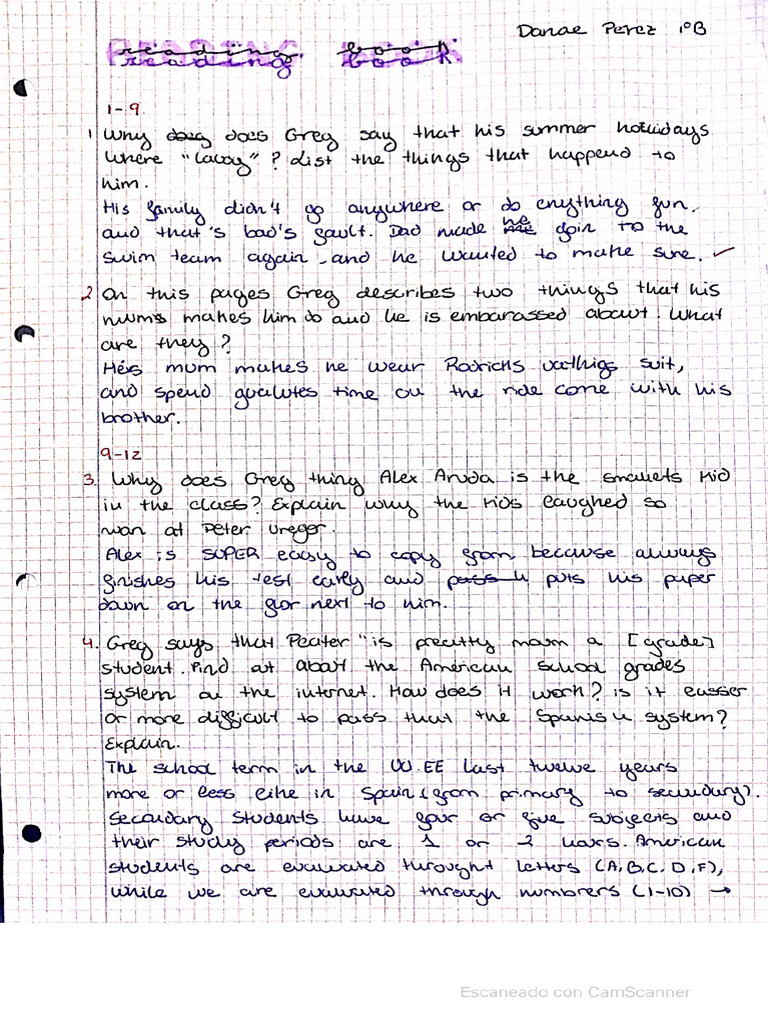 Danae Perez 1ºB
reading book
1-9
1 Why does Greg say that his summer holiudays
where "lavoy"? List the things that happend to
him.
His family didn't go anywhere or do enything fun,
and that's bad's fault. Dad made he join to the
swim team again, and he wanted to make sure.
2 On this pages Greg describes two things that his
mums makes him do and he is embarassed about. What
are they?
His mum makes he wear Rodricks vathigs suit,
and spend time on the ride come with his
brother.
9-12
3. Why does Greg thing Alex Aruda is the smallets kid
in the class? Explain why the kids laughed so
at Peter Ureger.
Alex is SUPER easy to copy from because always
finishes his test early and puts his paper
down on the flor next to him.
4. Greg says that Peater "is preatty mam a [grade]
student. Find at abaut the American school grades
system on the internet. How does it work? is it easser
or more difficult to pass that the Spanish system?
Explain.
The school term in the UU.EE last twelve years
more or less like in Spain (from primary to secundury).
Secondary students have four or five subjects and
their study periods are 1 or 2 hours. American
students are evaluated throught letters (A,B,C,D,F),
while we are evaluated through numbrers (1-10) →
Escaneado con CamScanner